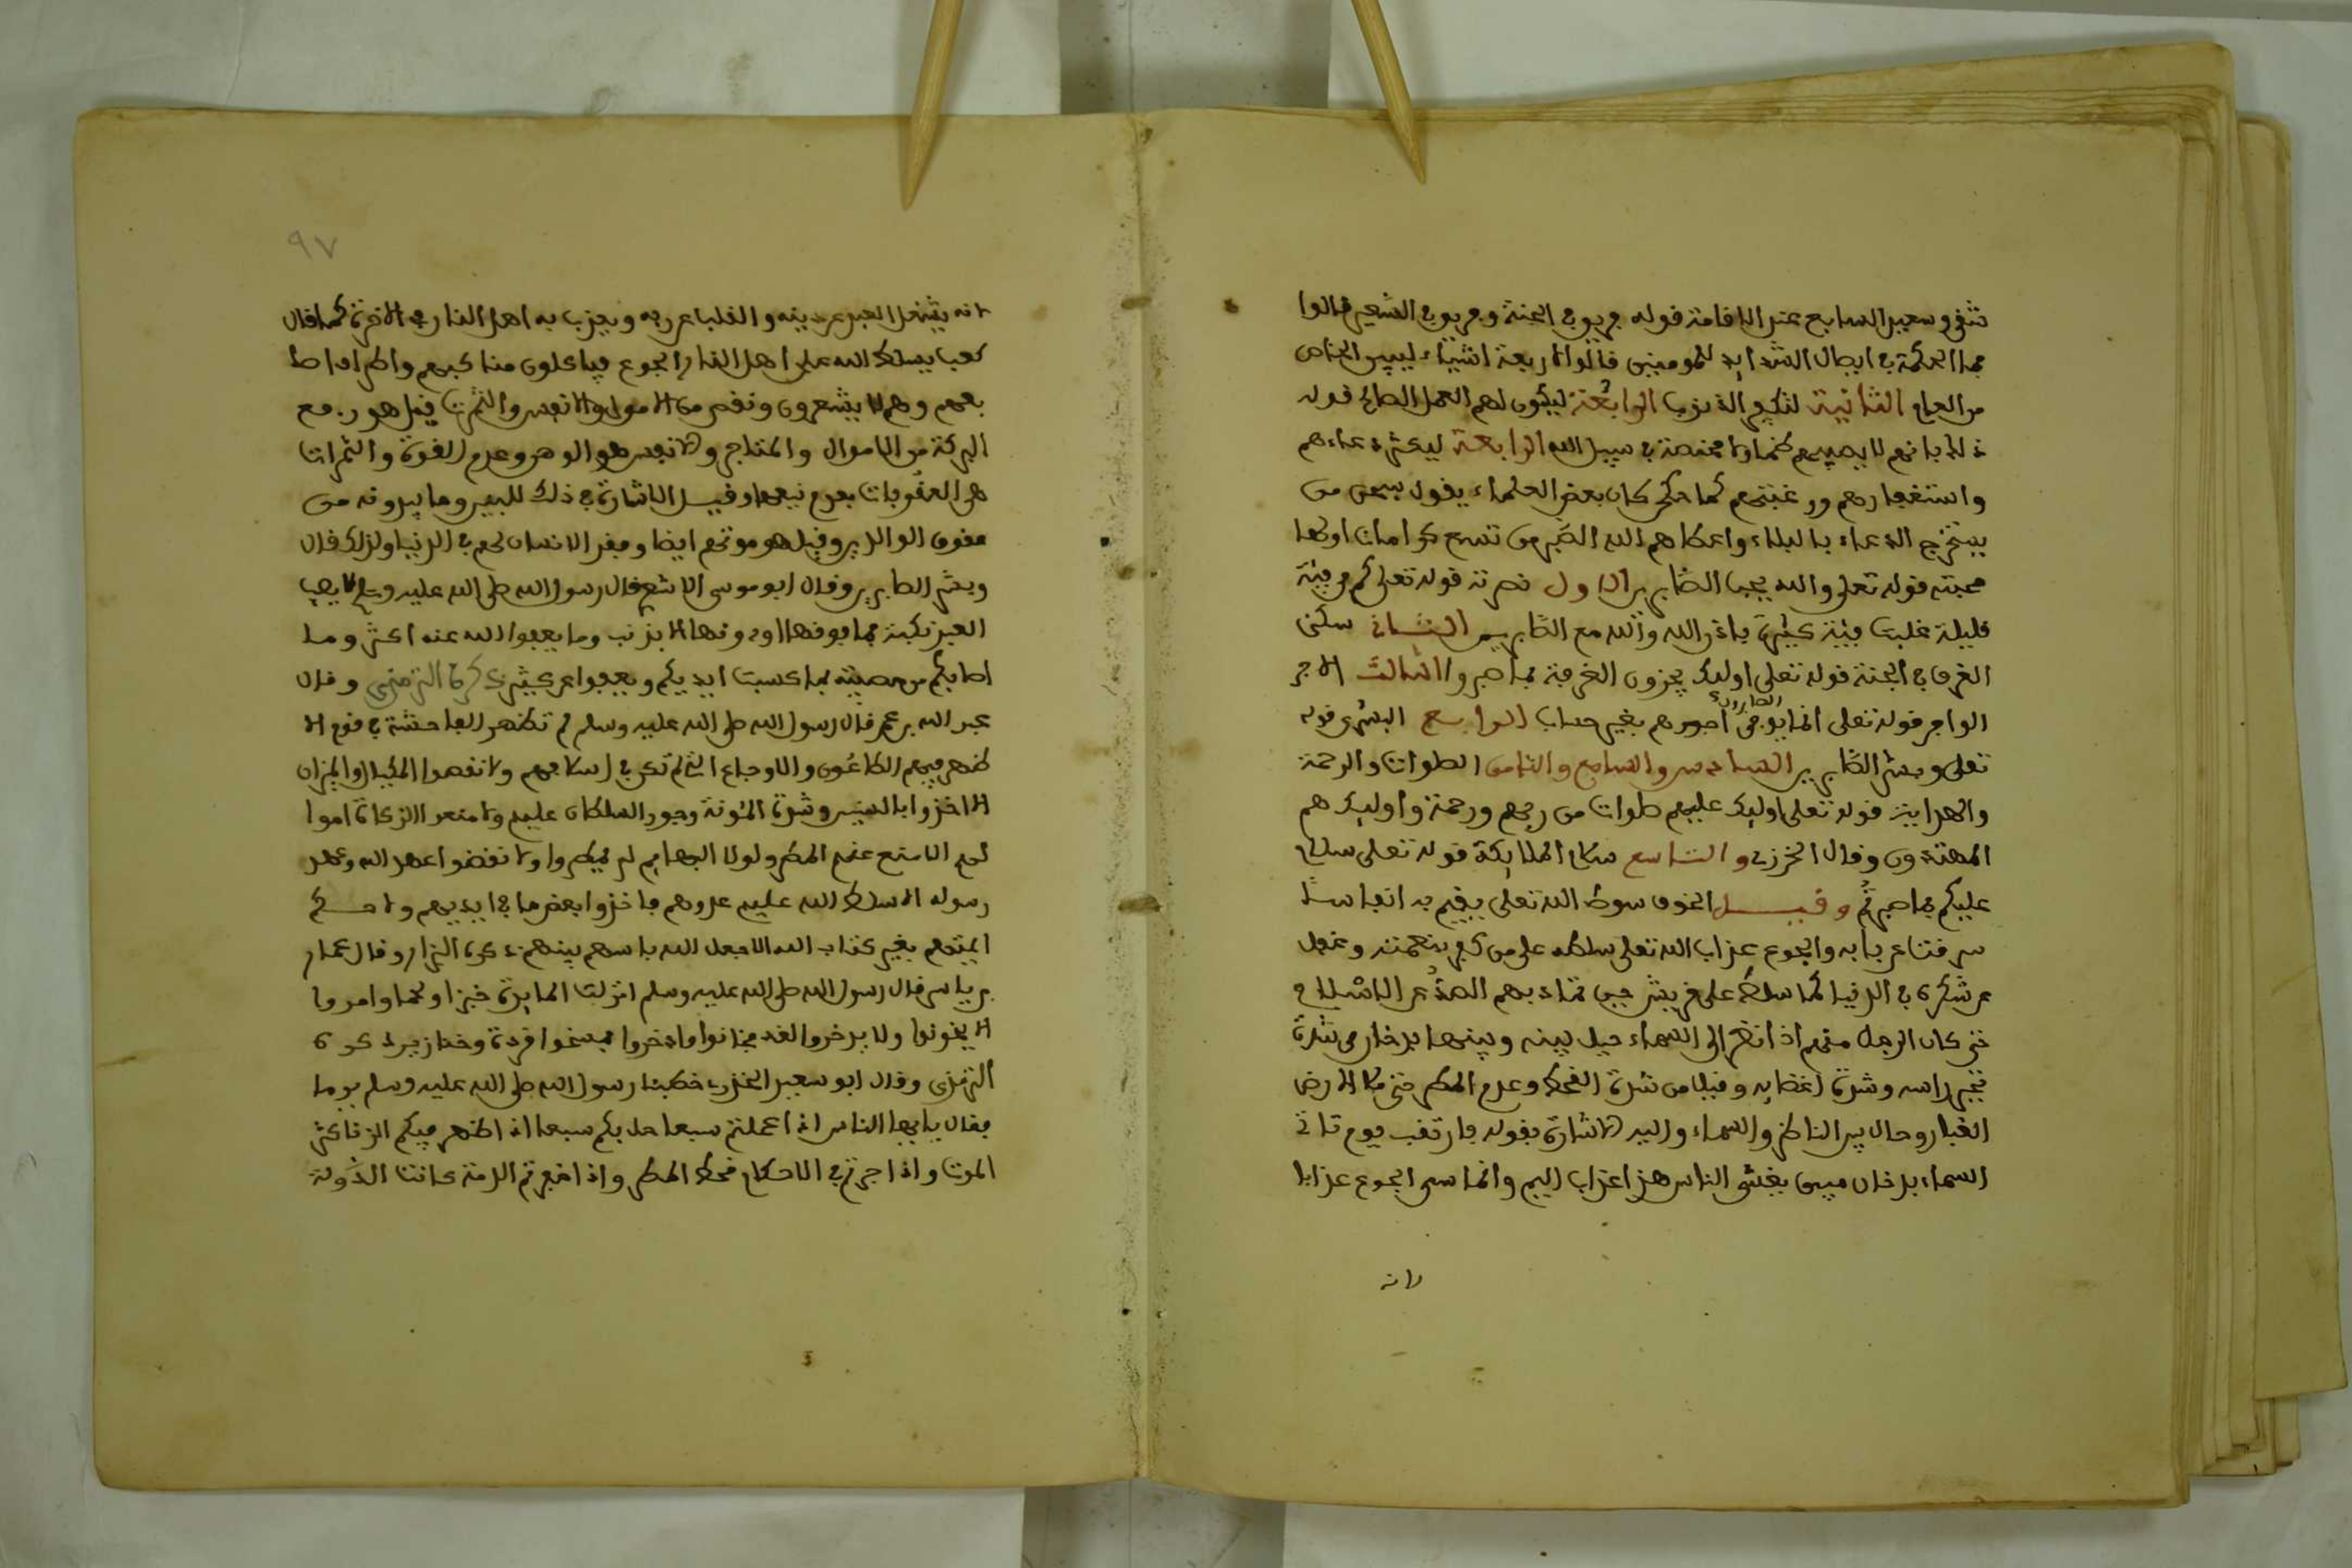 شقي وسعيد السابع عند الاقامة قوله فريق في الجنة وفريق في السعير قالوا
فما الحكمة في ايصال الشدايد للمومنين قالوا لاربعة اشياء ليتبين الخاص
من العام الثانية لتكفير الذنوب الرابعة ليكون لهم العمل الصالح قوله
ذلك بانهم لا يصيبهم ظما ولا مخمصة في سبيل الله الرابعة ليكثر دعاءهم
واستغفارهم ورغبتهم كما حكي كان بعض العلماء يقول سبحن من
يستخرج الدعاء بالبلاء واعطاهم الله الصبر من تسع كرامات اولها
محبته قوله تعلى والله يحب الصابرين الاول نصرته قوله تعلى كم من فيئة
قليلة غلبت فيئة كثيرة باذن الله والله مع الصابرين الثاني سكنى
الغرف في الجنة قوله تعلى اوليك يجزون الغرفة بما صبروا الثالث الاجر
الوافر قوله تعلى انما يوفى الصابرون اجورهم بغير حساب الرابع البشرى قوله
تعلى وبشر الصابرين السادس والسابع والثامن الصلوات والرحمة
والهداية قوله تعلى اوليك عليهم صلوات من ربهم ورحمة واوليك هم
المهتدون وقال الخزرجي والتاسع سلام الملايكة قوله تعلى سلام
عليكم بما صبرتم وقيل الخوف سوط الله تعلى يقيم به انفاسا
شرفت عن بابه والجوع عذاب الله تعلى سلطه على من كفر بنعمته وغفل
عن شكره في الدنيا كما سلطه على قريش حين تمادى بهم الصد عن الاسلام
حتى كان الرجل منهم اذا نظر الى السماء حيل بينه وبينها بدخان من شدة
تحير راسه وشدة اغضابه وقيل من شدة القحط وعدم المطر حتى ملا الارض
الغبار وحال بين الناظر والسماء واليه الاشارة بقوله فارتقب يوم تاتي
السماء بدخان مبين يغشى الناس هذا عذاب اليم وانما سمي الجوع عذابا
لانه
٩٧
لانه يشغل العبد عن دينه والقلب عن ربه ويعذب به اهل النار في الاخرة كما قال
كعب يسلط الله على اهل النار الجوع فياكلون مناكبهم واطرافا
بعضهم وهم لا يشعرون ونقص من الاموال والانفس والثمرات قيل هو رفع
البركة من الاموال والمتاجر والانفس هو الوهن وعدم القوة والثمرات
هي العقوبات بعدم نبعها وقيل الاشارة في ذلك للبعير وما يبدونه من
عقوق الوالدين وقيل هو موتهم ايضا وفقد الانسان لهم في الدنيا ولذلك قال
وبشر الصابرين وقال ابو موسى الاشعري قال رسول الله صلى الله عليه وسلم لا يصيب
العبد نكبة فما فوقها او دونها الا بذنب وما يعفوا الله عنه اكثر وما
اصابكم من مصيبة بما كسبت ايديكم ويعفوا عن كثير ذكره الترمذي وقال
عبد الله بن عمر قال رسول الله صلى الله عليه وسلم لم تظهر الفاحشة في قوم الا
ظهر فيهم الطاعون والاوجاع التي لم تكن في اسلافهم ولا نقصوا المكيال والميزان
الا اخذوا بالسنين وشدة المئونة وجور السلطان عليهم ولا منعوا الزكاة اموا
لهم الا منع عنهم المطر ولولا البهايم لم يمطروا ولا نقضوا عهد الله وعهد
رسوله الا سلط الله عليهم عدوهم فاخذوا بعض ما في ايديهم ولا حكم
ايمتهم بغير كتاب الله الا جعل الله باسهم بينهم ذكره البزار وقال عمار
بن ياسر قال رسول الله صلى الله عليه وسلم انزلت المايدة خبزا ولحما وامروا
الا يخونوا ولا يدخروا لغد فخانوا وادخروا فمسخوا قردة وخنازير ذكره
الترمذي وقال ابو سعيد الخدري خطبنا رسول الله صلى الله عليه وسلم يوما
فقال يا ايها الناس اذا عملتم سبعا حل بكم سبعا اذا ظهر فيكم الزنا كثر
الموت واذا جرتم في الاحكام قحط المطر واذا خفرتم الذمة كانت الدولة